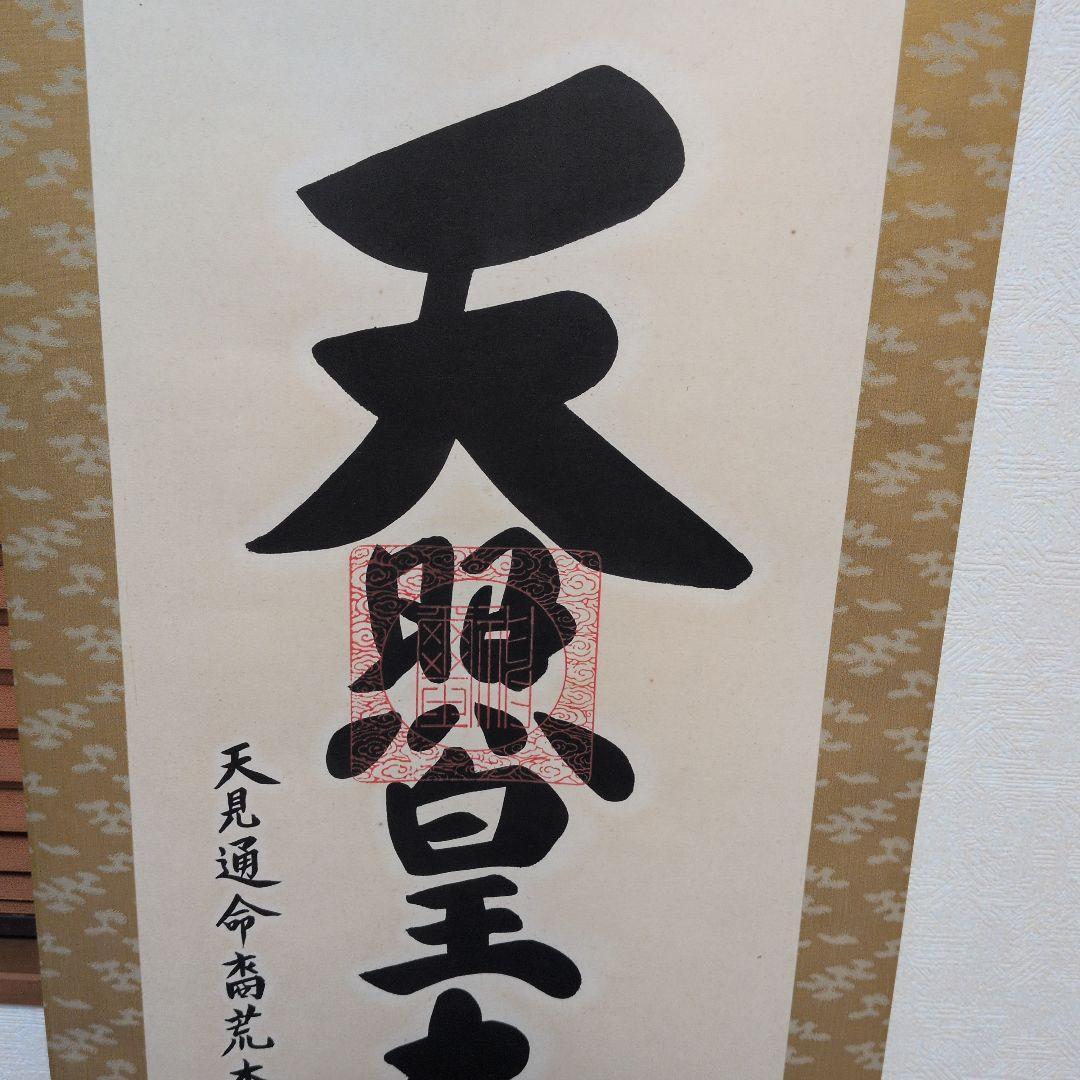 天照皇大
天見通命裔荒木